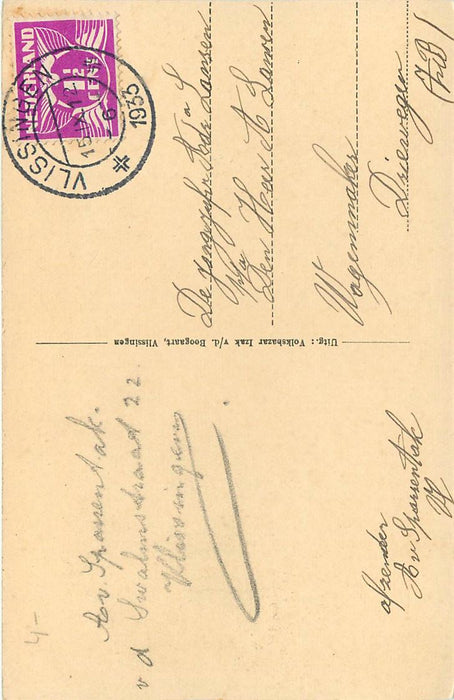 NEDERLAND
1½
CENT
VLISSINGEN
15.IV.12
1935
De
A L Lansen
p/a
Den Heer A Lansen
Wagenmaker
Driewegen
(Z.B)
Uitg.: Volksbazar Izak v/d. Boogaart, Vlissingen
4-
A v. Sparrentak.
v d Swalmstraat 22.
Vlissingen
afzender
A v Sparrentak
Vl